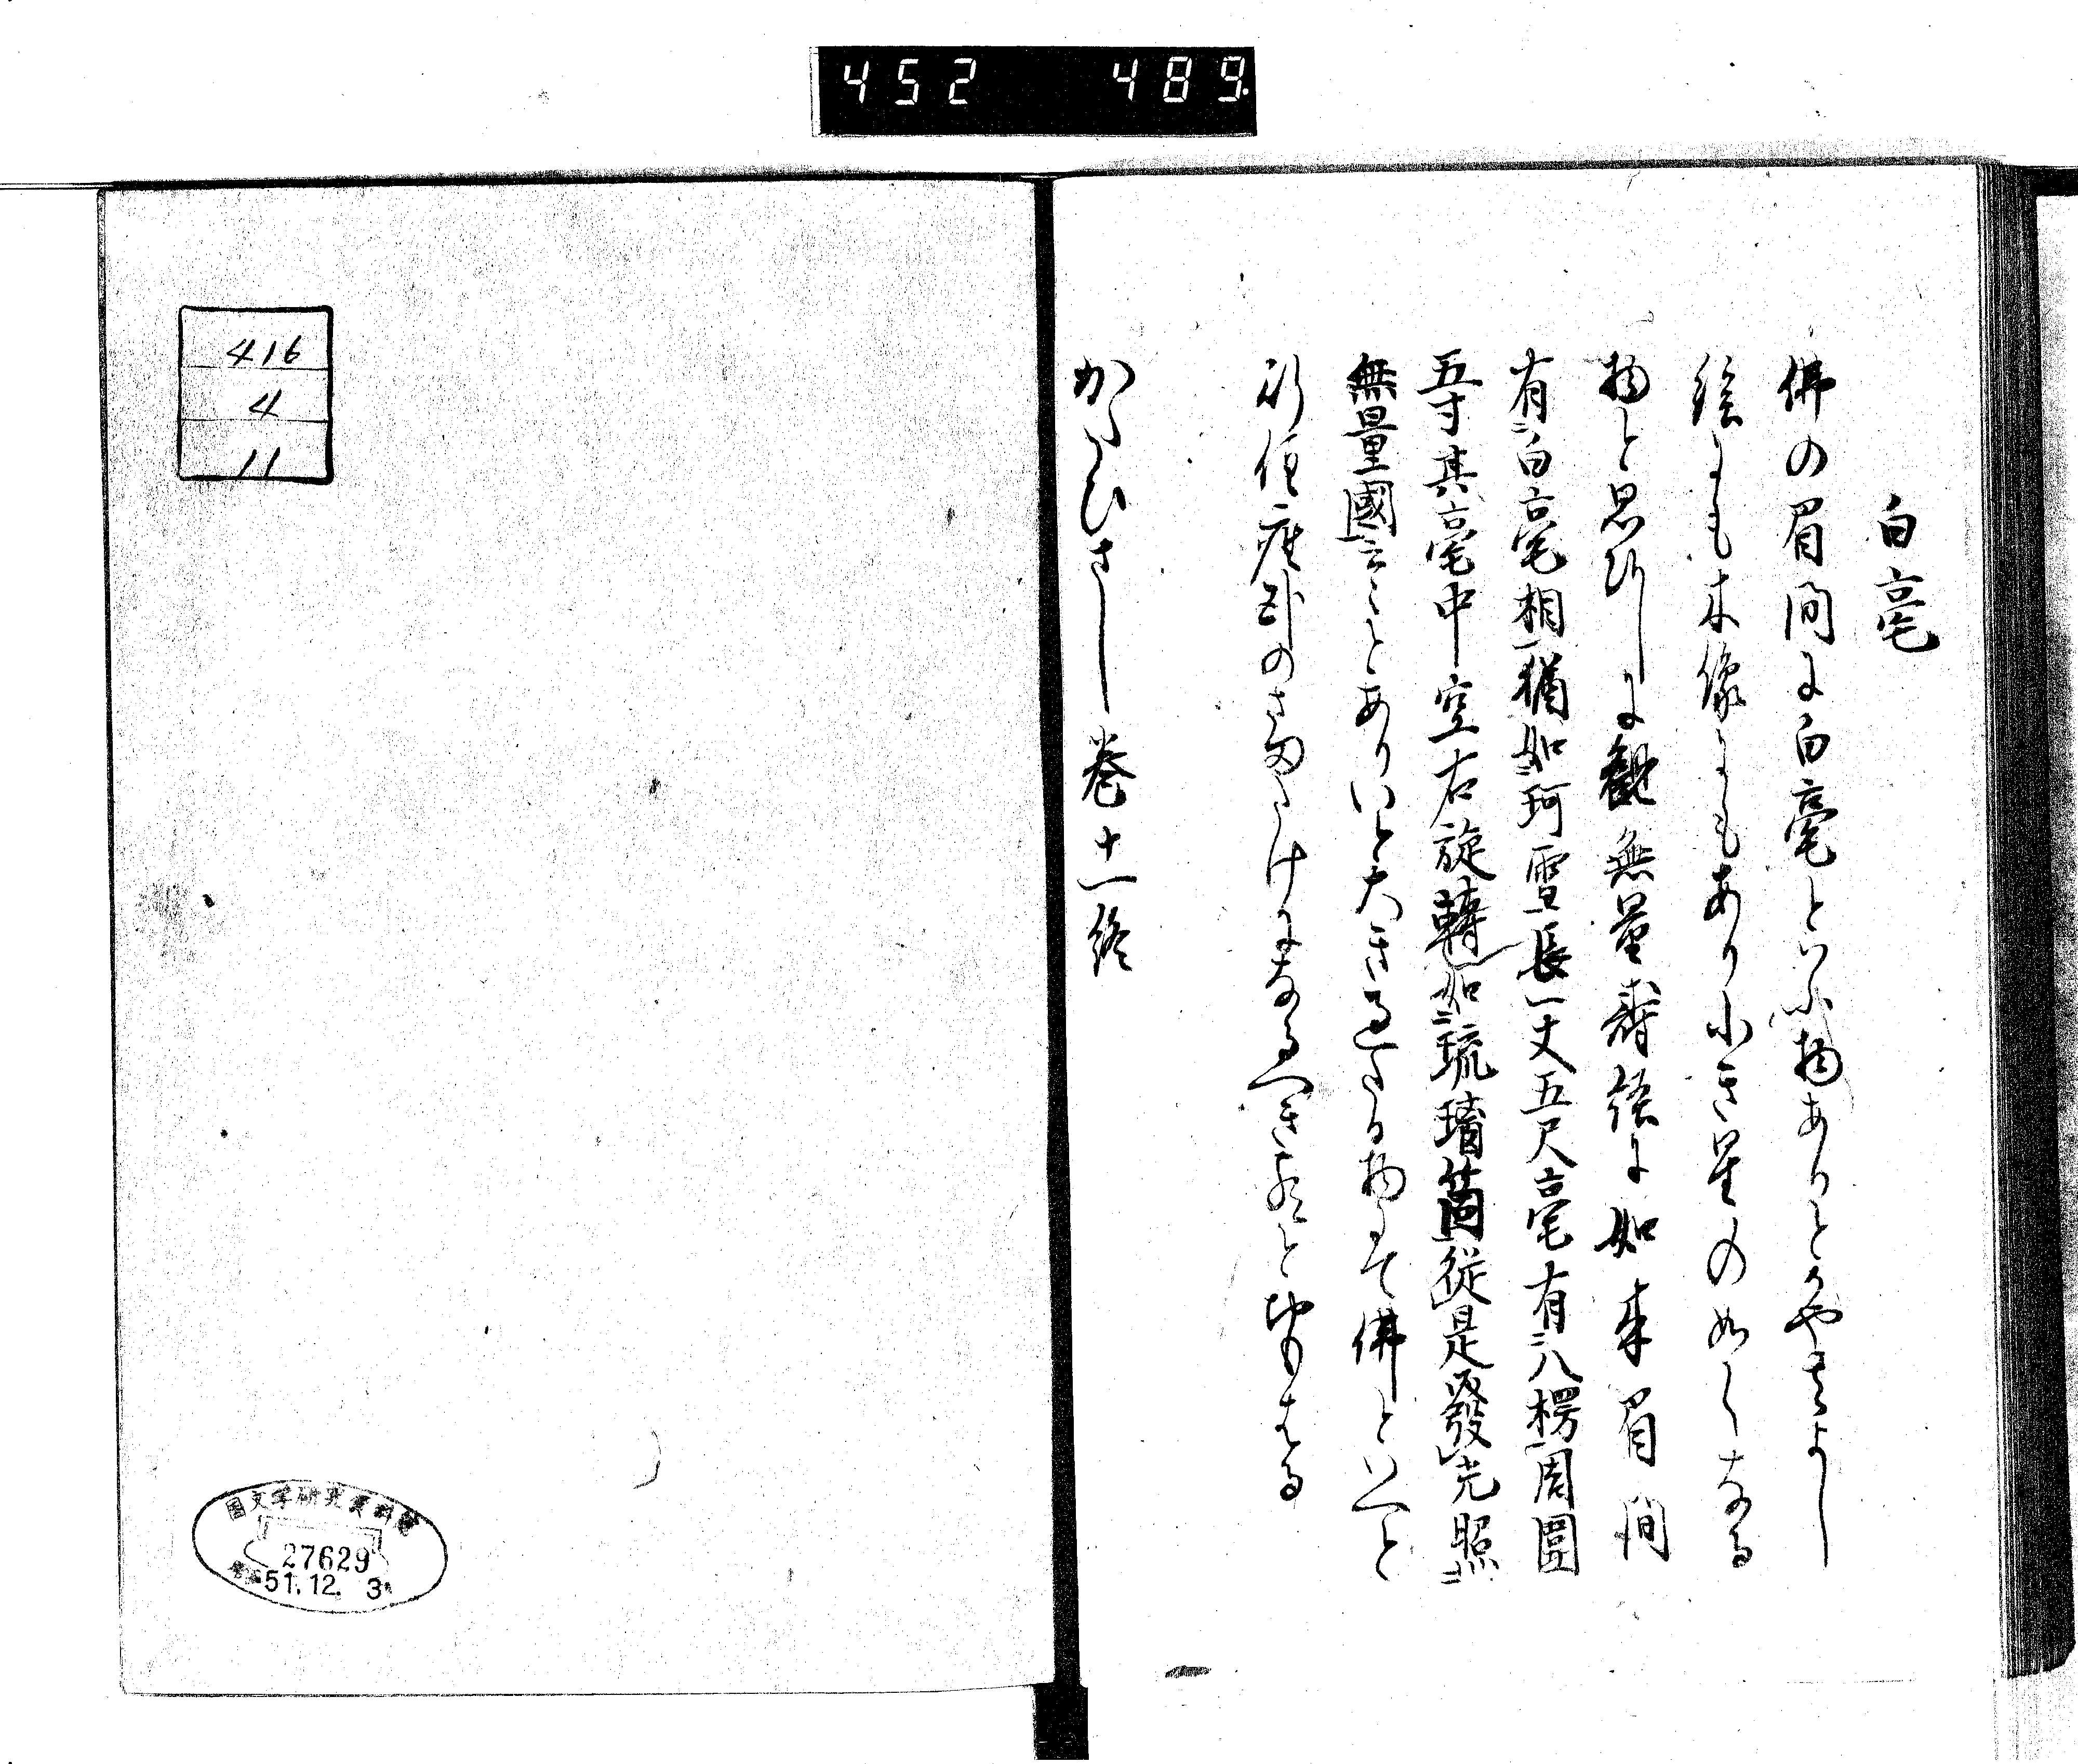 452 489.
白毫
佛の眉間に白毫といふ物ありとかやさよし
絵にも木像にもあり小き星の如くなる
物と思ひしに観無量壽経に如来眉間
有白毫相猶如珂雪長一丈五尺毫有八楞周圍
五寸其毫中空右旋轉如琉璃筒従是發光照
無量國云々とありいと大きなる物にて佛といへと
行住座臥のさまたけになるへき
かたひさし巻十一終
416
4
11
國文学研究資料館
27629
51.12.3